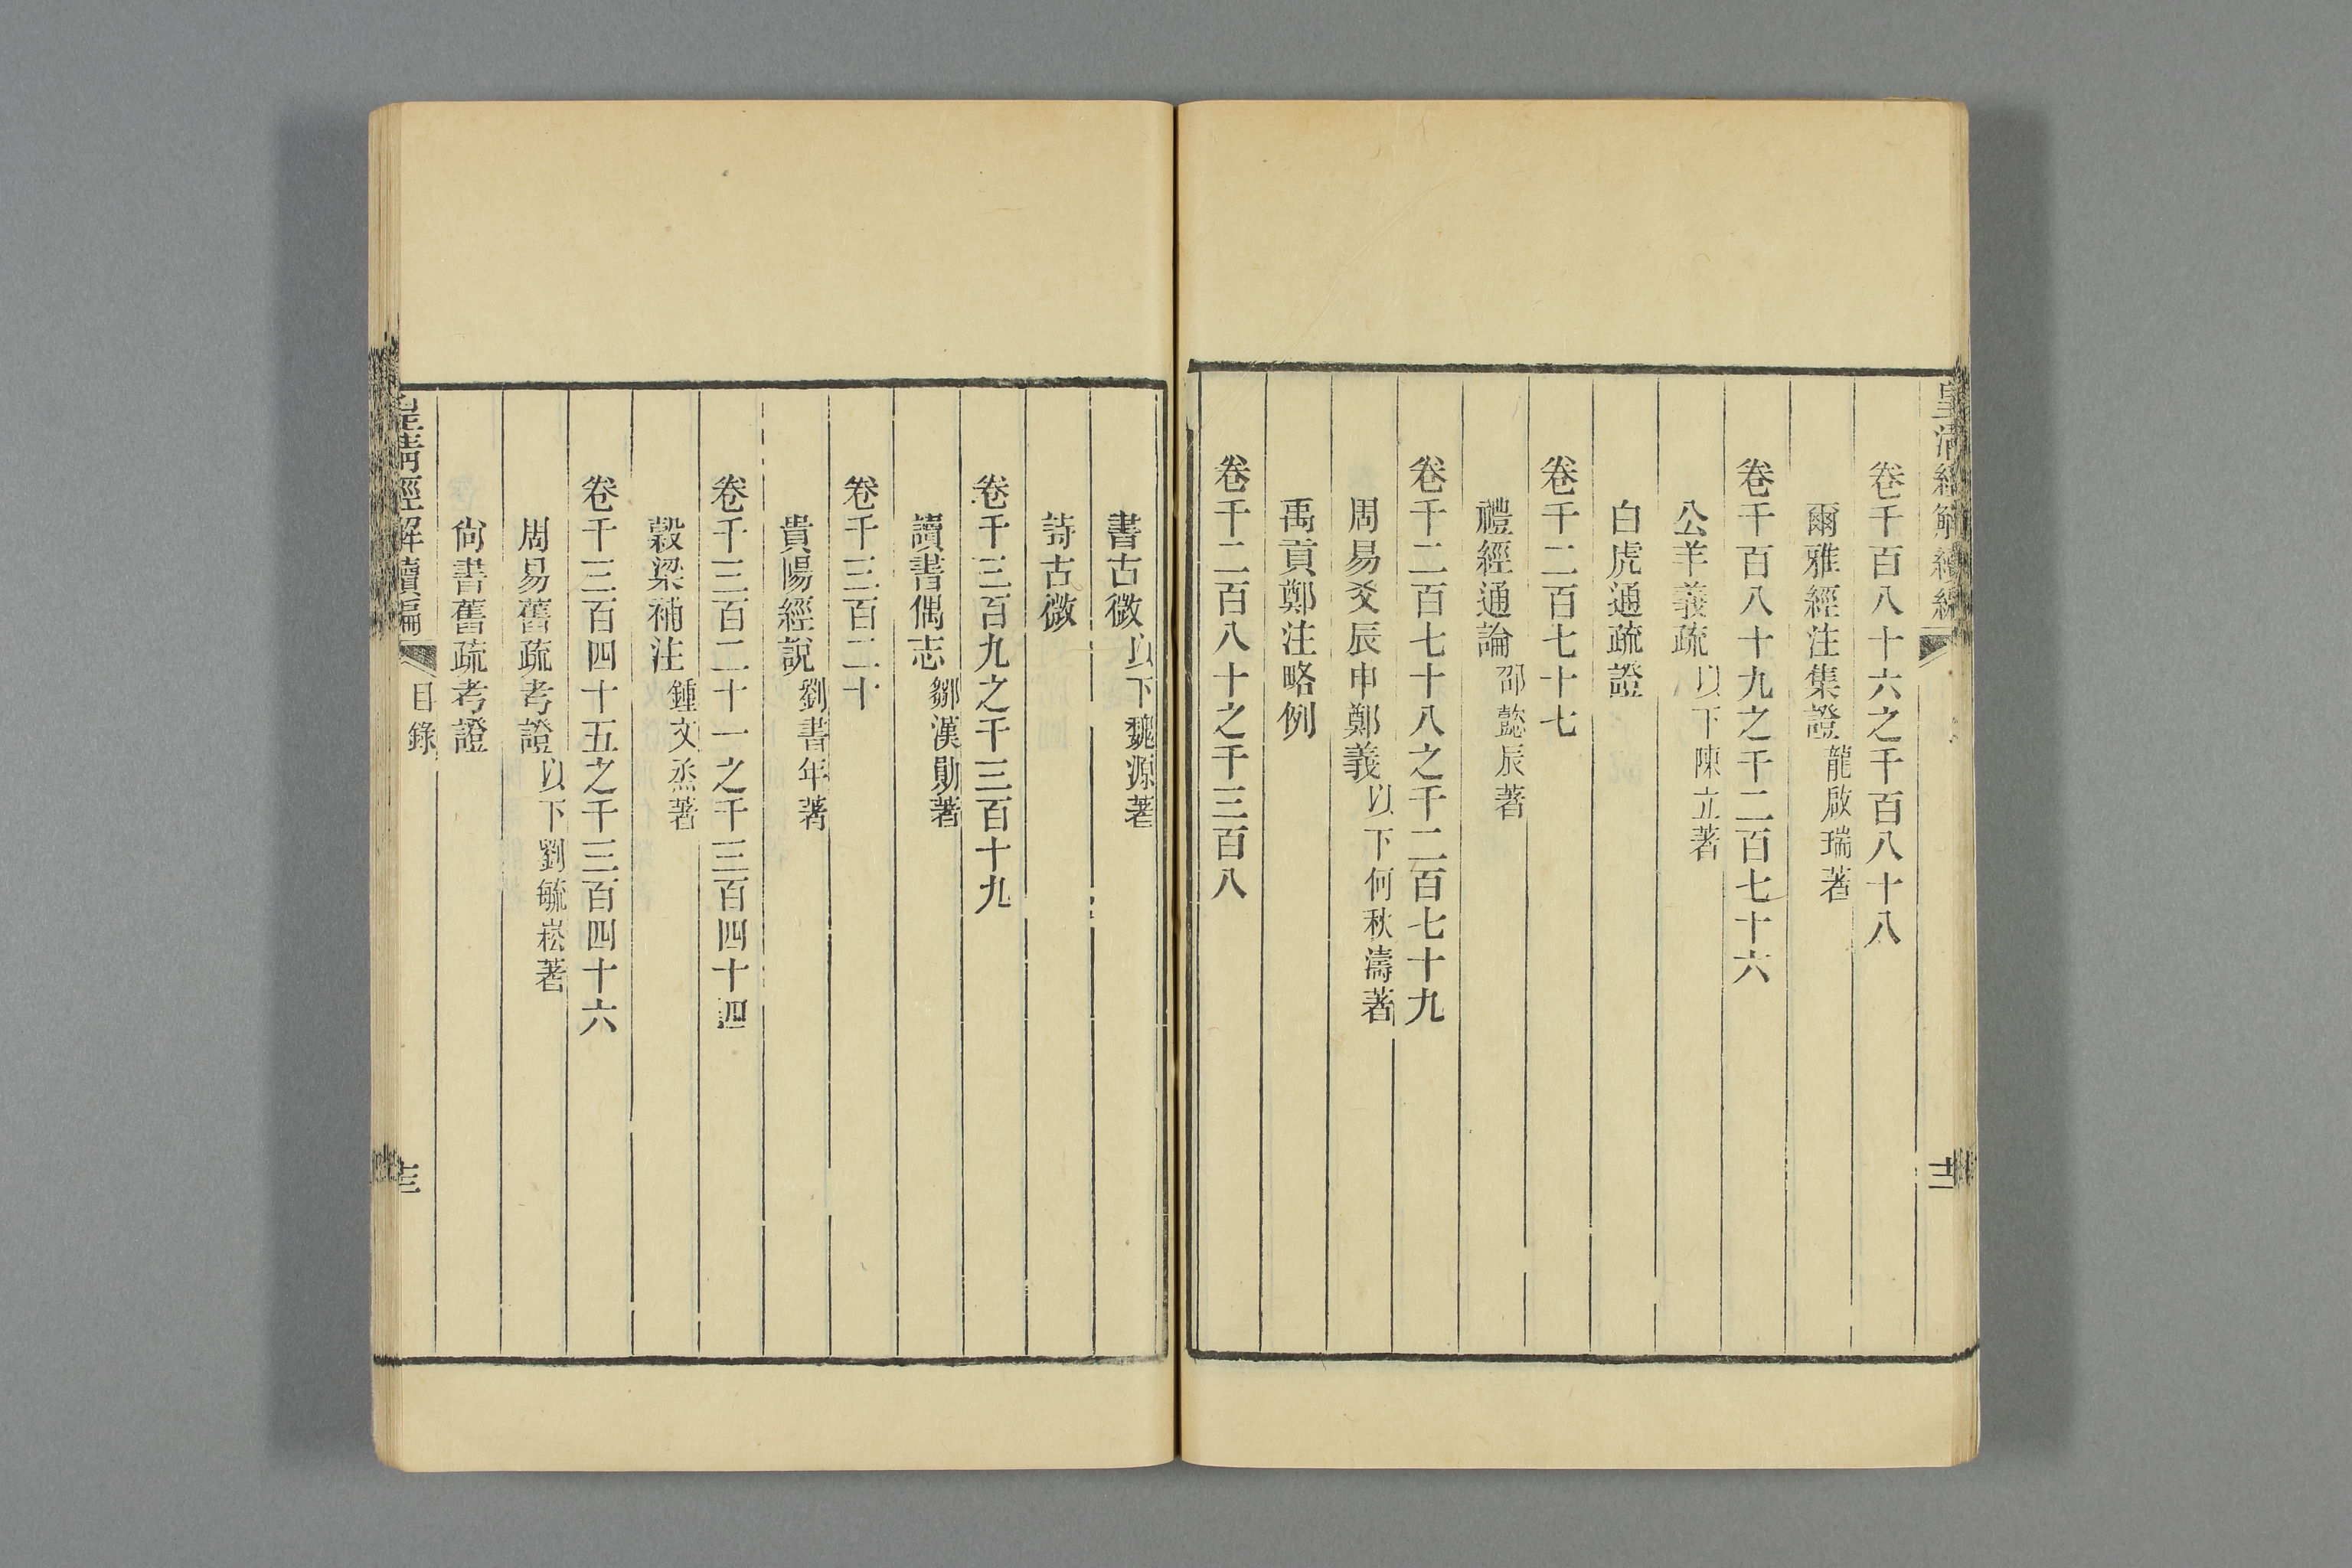 皇清經解續編
卷千百八十六之千百八十八
爾雅經注集證龍啟瑞著
卷千百八十九之千二百七十六
公羊義疏以下陳立著
白虎通疏證
卷千二百七十七
禮經通論邵懿辰著
卷千二百七十八之千二百七十九
周易爻辰申鄭義以下何秋濤著
禹貢鄭注略例
卷千二百八十之千三百八
書古微以下魏源著
詩古微
卷千三百九之千三百十九
讀書偶志鄒漢勛著
卷千三百二十
貴陽經說劉書年著
卷千三百二十一之千三百四十四
穀梁補注鍾文烝著
卷千三百四十五之千三百四十六
周易舊疏考證以下劉毓崧著
尚書舊疏考證
皇清經解續編 目錄